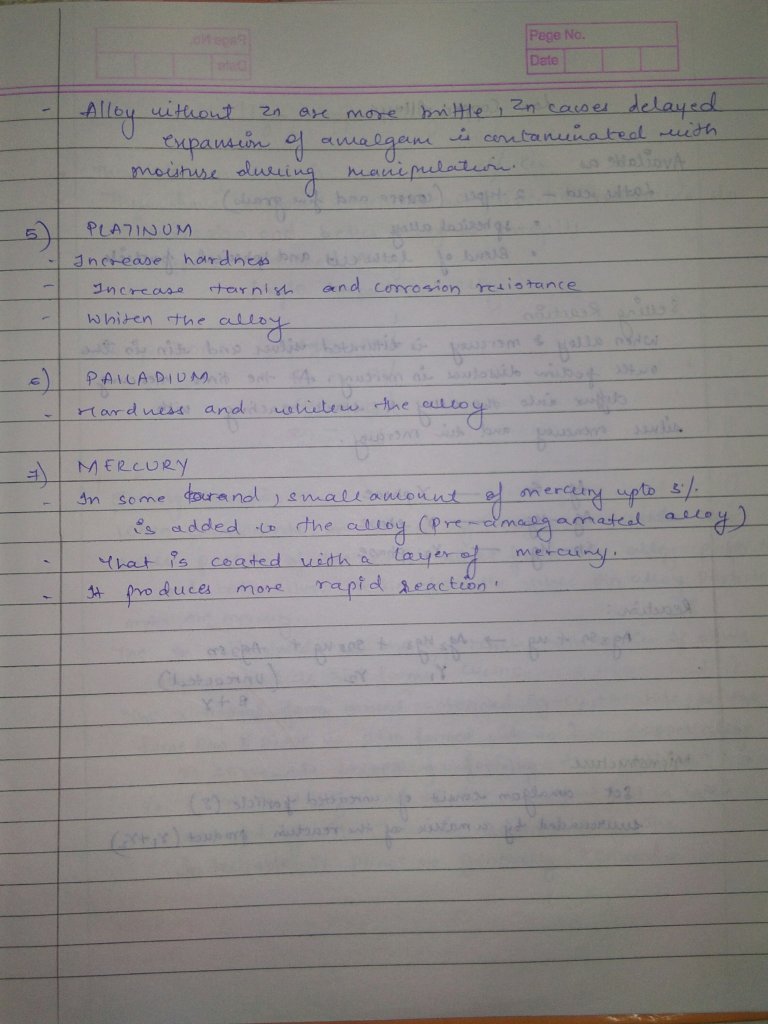 Page No.
Date
- Alloy without Zn are more brittle, Zn causes delayed
expansion of amalgam is contaminated with
moisture during manipulation.
5) PLATINUM
- Increase hardness
- Increase tarnish and corrosion resistance
- Whiten the alloy
6) PALLADIUM
- Hardness and whiten the alloy
7) MERCURY
- In some brand, small amount of mercury upto 3%.
is added to the alloy (Pre-amalgamated alloy)
- That is coated with a layer of mercury.
- It produces more rapid reaction.